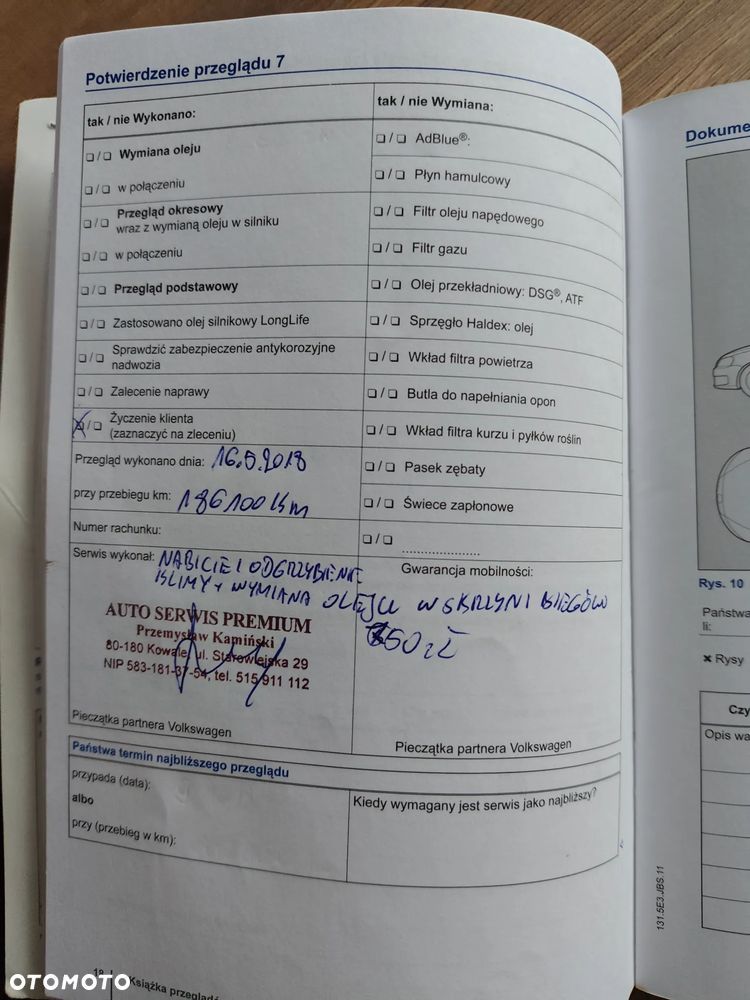 Potwierdzenie przeglądu 7
tak / nie Wykonano:
❏ / ❏ Wymiana oleju
❏ / ❏ w połączeniu
❏ / ❏ Przegląd okresowy
wraz z wymianą oleju w silniku
❏ / ❏ w połączeniu
❏ / ❏ Przegląd podstawowy
❏ / ❏ Zastosowano olej silnikowy LongLife
❏ / ❏ Sprawdzić zabezpieczenie antykorozyjne
nadwozia
❏ / ❏ Zalecenie naprawy
❏ / ❏ Życzenie klienta
(zaznaczyć na zleceniu)
Przegląd wykonano dnia: 16.5.2018
przy przebiegu km: 186100 km
Numer rachunku:
tak / nie Wymiana:
❏ / ❏ AdBlue®:
❏ / ❏ Płyn hamulcowy
❏ / ❏ Filtr oleju napędowego
❏ / ❏ Filtr gazu
❏ / ❏ Olej przekładniowy: DSG®, ATF
❏ / ❏ Sprzęgło Haldex: olej
❏ / ❏ Wkład filtra powietrza
❏ / ❏ Butla do napełniania opon
❏ / ❏ Wkład filtra kurzu i pyłków roślin
❏ / ❏ Pasek zębaty
❏ / ❏ Świece zapłonowe
❏ / ❏ .....................
Serwis wykonał: NABICIE I ODGRZYBIENIE
KLIMY + WYMIANA OLEJU W SKRZYNI BIEGÓW
Gwarancja mobilności:
650 zŁ
AUTO SERWIS PREMIUM
Przemysław Kamiński
80-180 Kowale, ul. Starowiejska 29
NIP 583-181-37-54, tel. 515 911 112
Pieczątka partnera Volkswagen
Pieczątka partnera Volkswagen
Państwa termin najbliższego przeglądu
przypada (data):
albo
przy (przebieg w km):
Kiedy wymagany jest serwis jako najbliższy?
18
Książka przeglądó
Dokume
Rys. 10
Państwa
li:
× Rysy
Czy
Opis wa
131.5E3.JBS.11
OTOMOTO